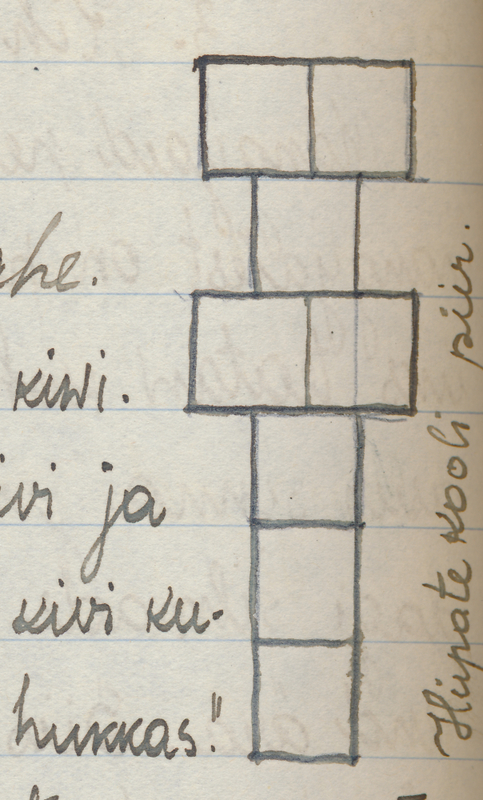 kiwi.
ja
kivi ku-
hukkas."
Hüpate kooli piir.